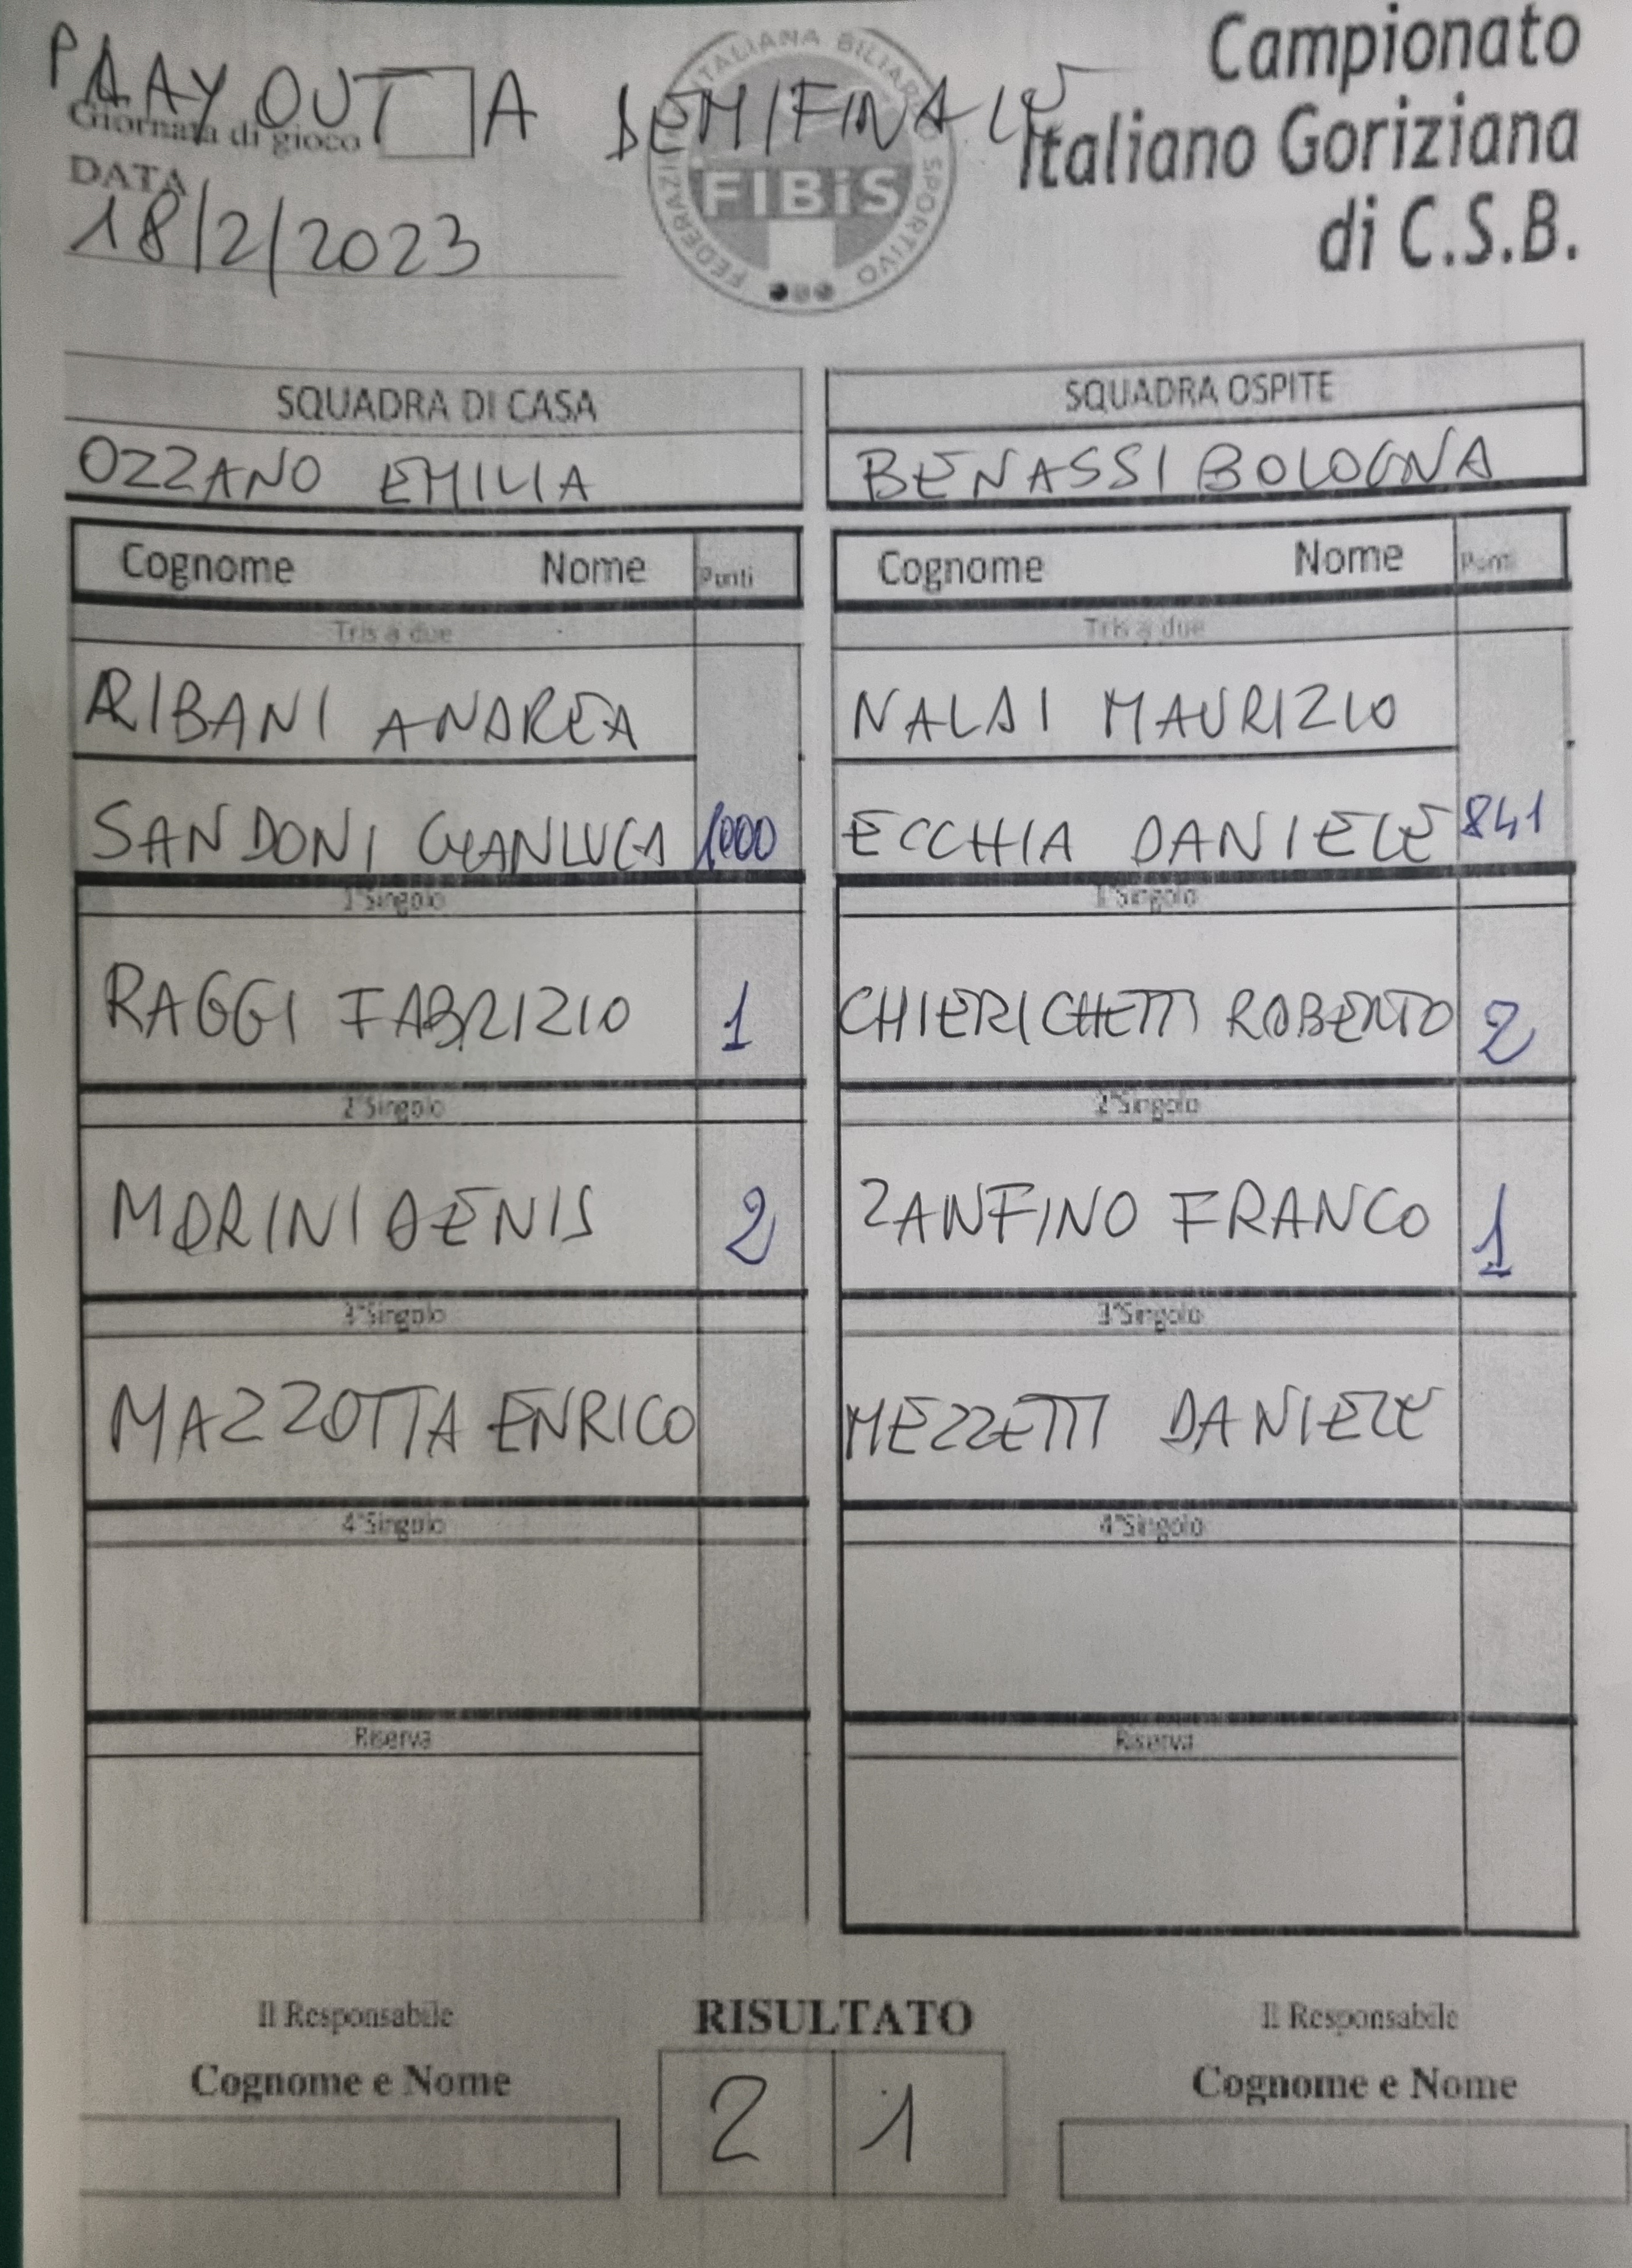 Campionato
Italiano Goriziana
di C.S.B.
PLAY OUT A SEMIFINALE
Giornata di gioco
DATA
18/2/2023
FEDERAZIONE ITALIANA BILIARDO SPORTIVO
FIBiS
SQUADRA DI CASA
OZZANO EMILIA
Cognome Nome Punti
Tris a due
RIBANI ANDREA
SANDONI GIANLUCA 1000
1°Singolo
RAGGI FABRIZIO 1
2°Singolo
MORINI DENIS 2
3°Singolo
MAZZOTTA ENRICO
4°Singolo
Riserva
SQUADRA OSPITE
BENASSI BOLOGNA
Cognome Nome Punti
Tris a due
NALDI MAURIZIO
ECCHIA DANIELE 841
1°Singolo
CHIERICHETTI ROBERTO 2
2°Singolo
ZANFINO FRANCO 1
3°Singolo
MEZZETTI DANIELE
4°Singolo
Riserva
Il Responsabile
Cognome e Nome
RISULTATO
2 1
Il Responsabile
Cognome e Nome